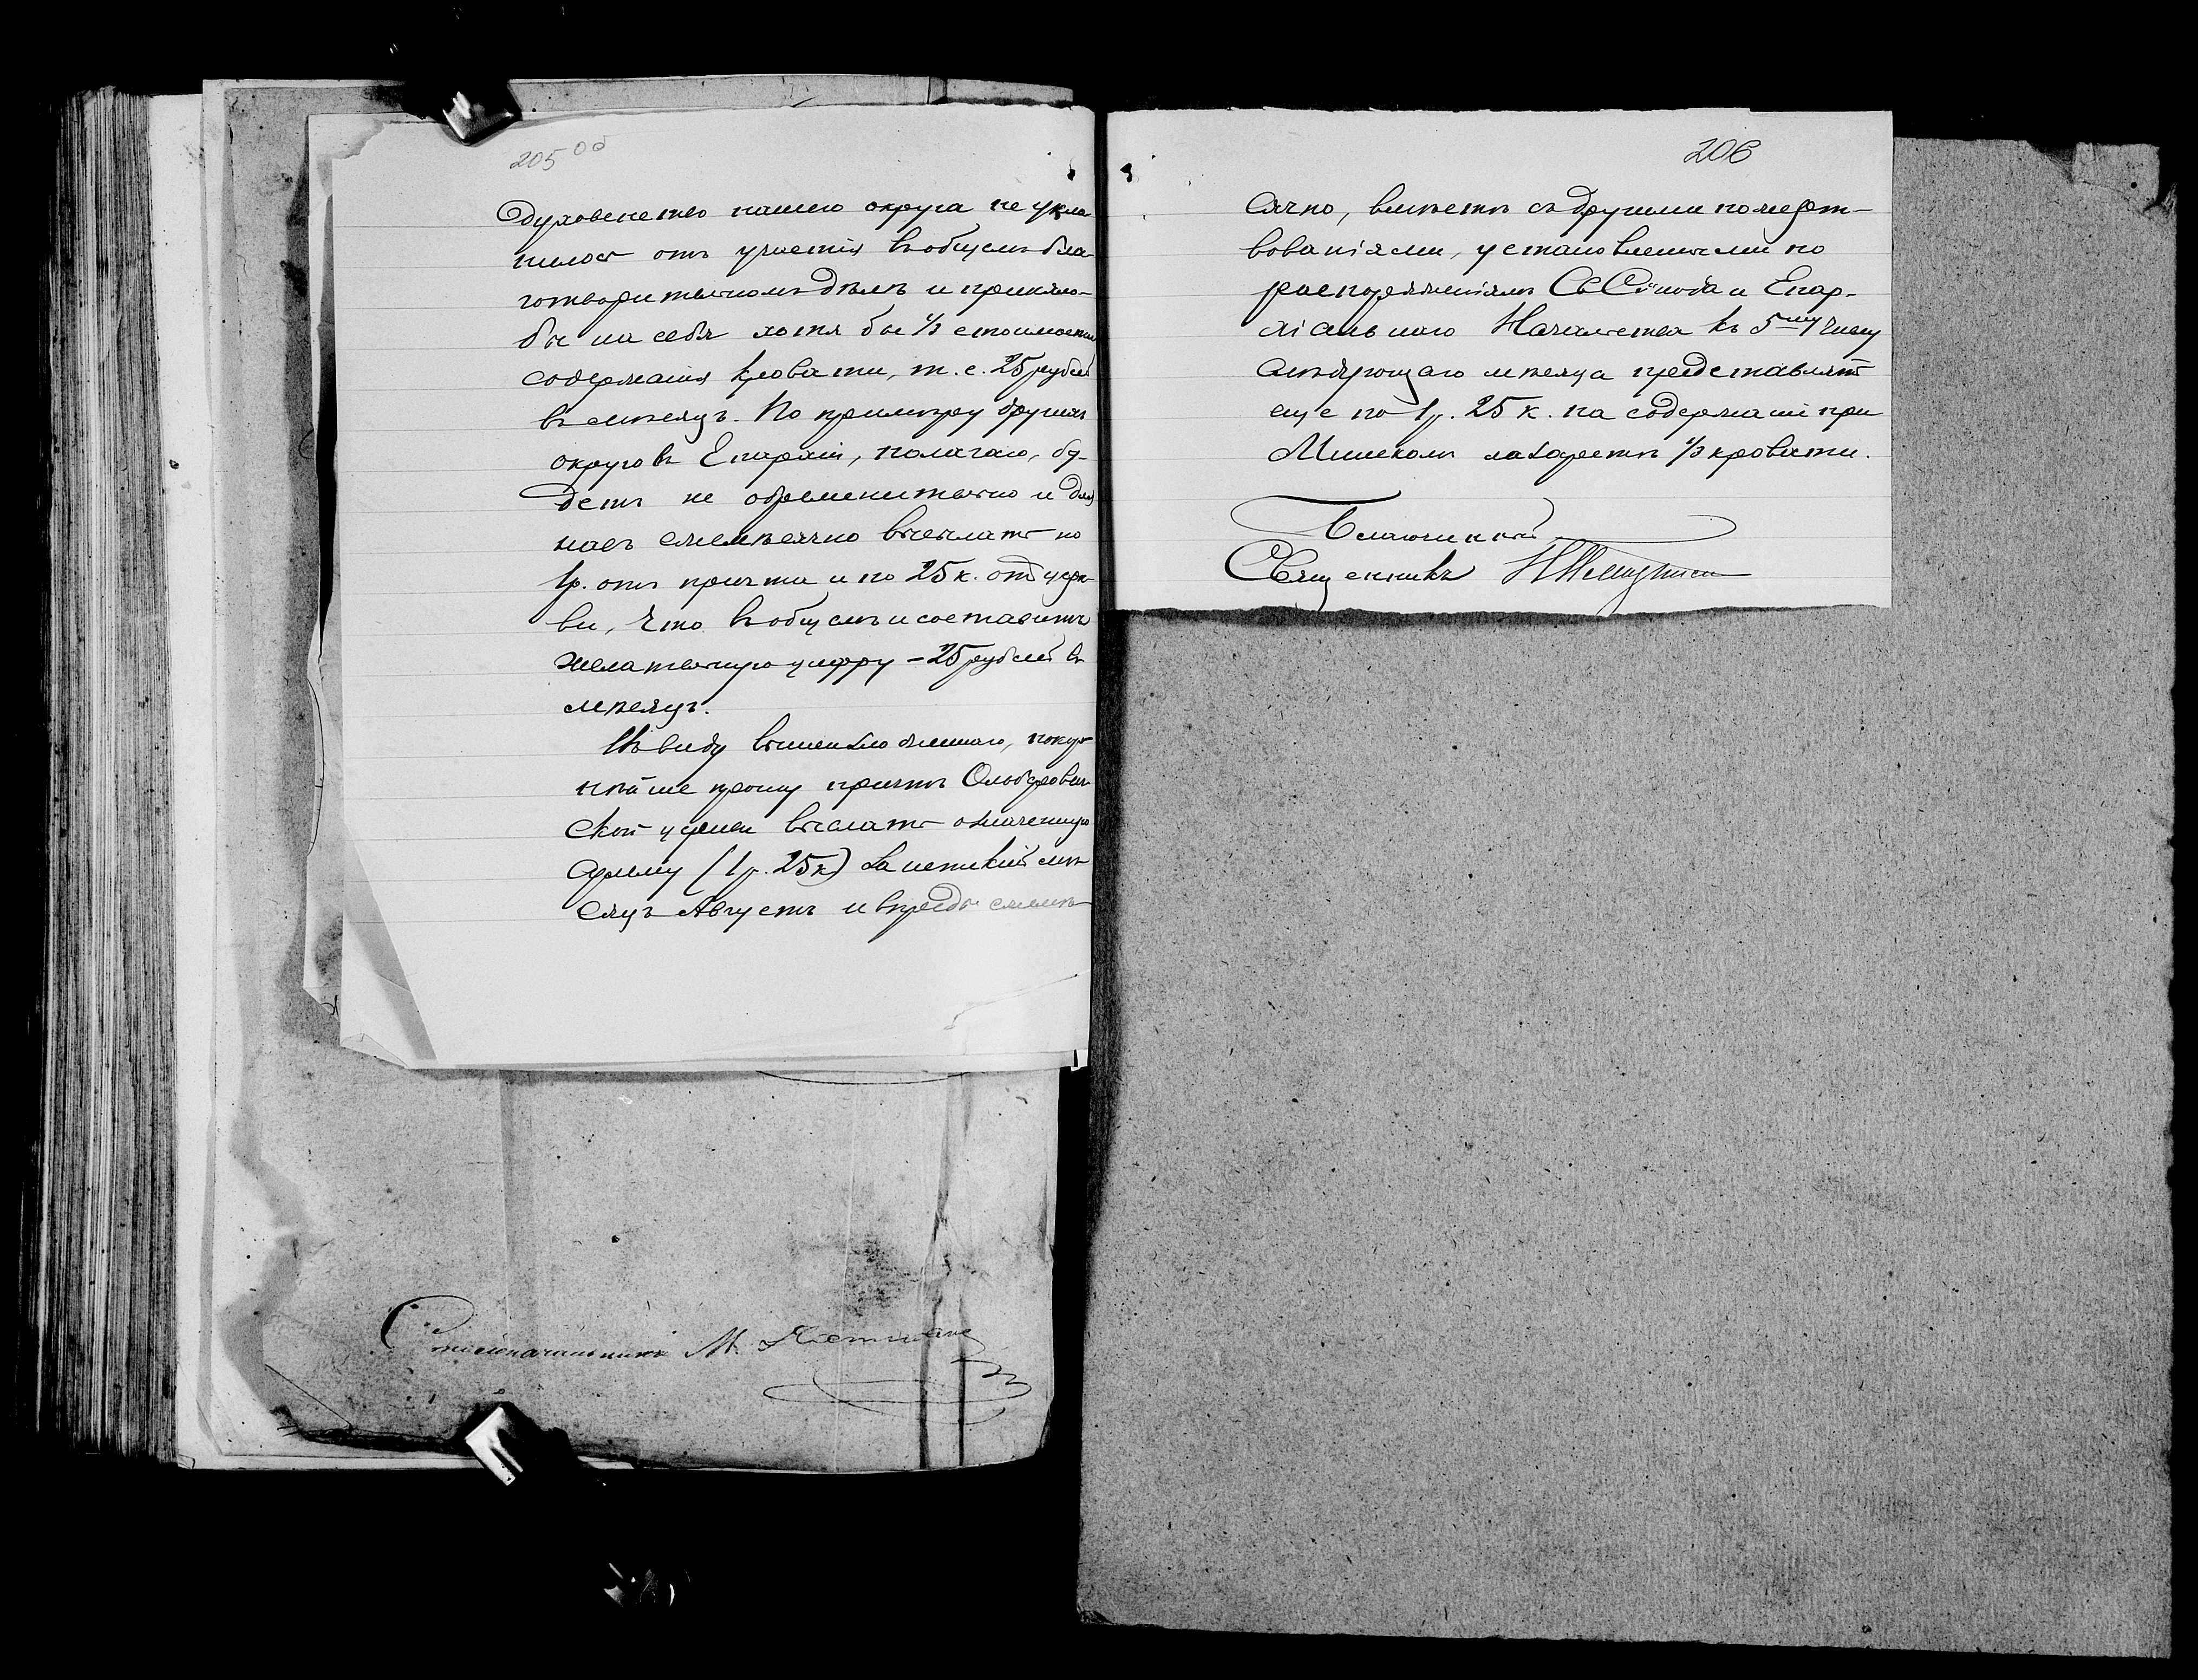 205 об
духовенство нашего округа не укло-
нилось отъ участія въ общемъ бла-
готворительномъ дѣлѣ и приняло-
бы на себя хотя бы ½ стоимости
содержанія кровати, т. е. 25 рублей
въ мѣсяцъ. По примѣру другихъ
округовъ Епархіи, полагаю, бу-
детъ не обременительно и для
насъ ежемѣсячно высылать по
1 р. отъ причта и по 25 к. отъ церк-
ви, что въ общемъ и составитъ
желательную цифру – 25 рублей въ
мѣсяцъ.
Въ виду вышеизложеннаго, покор-
нѣйше прошу причтъ
ской церкви выслать означенную
сумму (1 р. 25 к) за истекшій мѣ-
сяцъ Августъ и впредь ежемѣ-
206
сячно, вмѣстѣ съ другими пожерт-
вованіями, установленными по
распоряженіямъ Св Сѵнода и Епар-
хіальнаго Начальства къ 5му числу
слѣдующаго мѣсяца представлять
еще по 1 р. 25 к. на содержаніе при
Минскомъ лазаретѣ ½ кровати.
Благочинный
Священникъ
Столоначальникъ М.